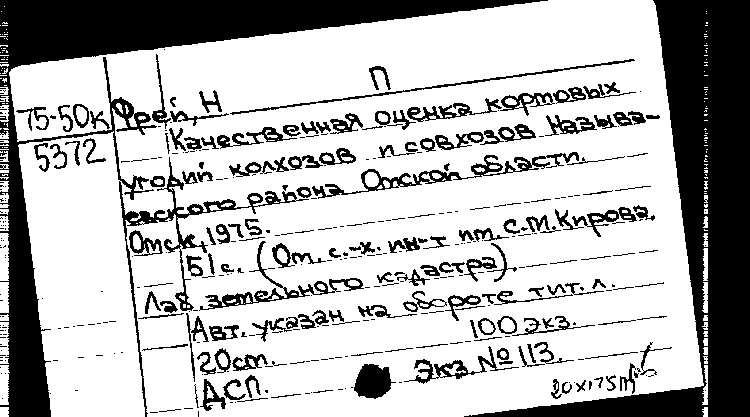 П
75-50к Фрей, Н
5372 Качественная оценка кортовых
угодий колхозов и совхозов Называ-
евского района Омской области.
Омск, 1975.
51 с. (Ом. с.-х. ин-т им. С.М. Кирова.
Лаб. зетельного кадастра).
Авт. указан на обороте тит. л.
20 см. 100 экз.
ДСП. Экз. № 113.